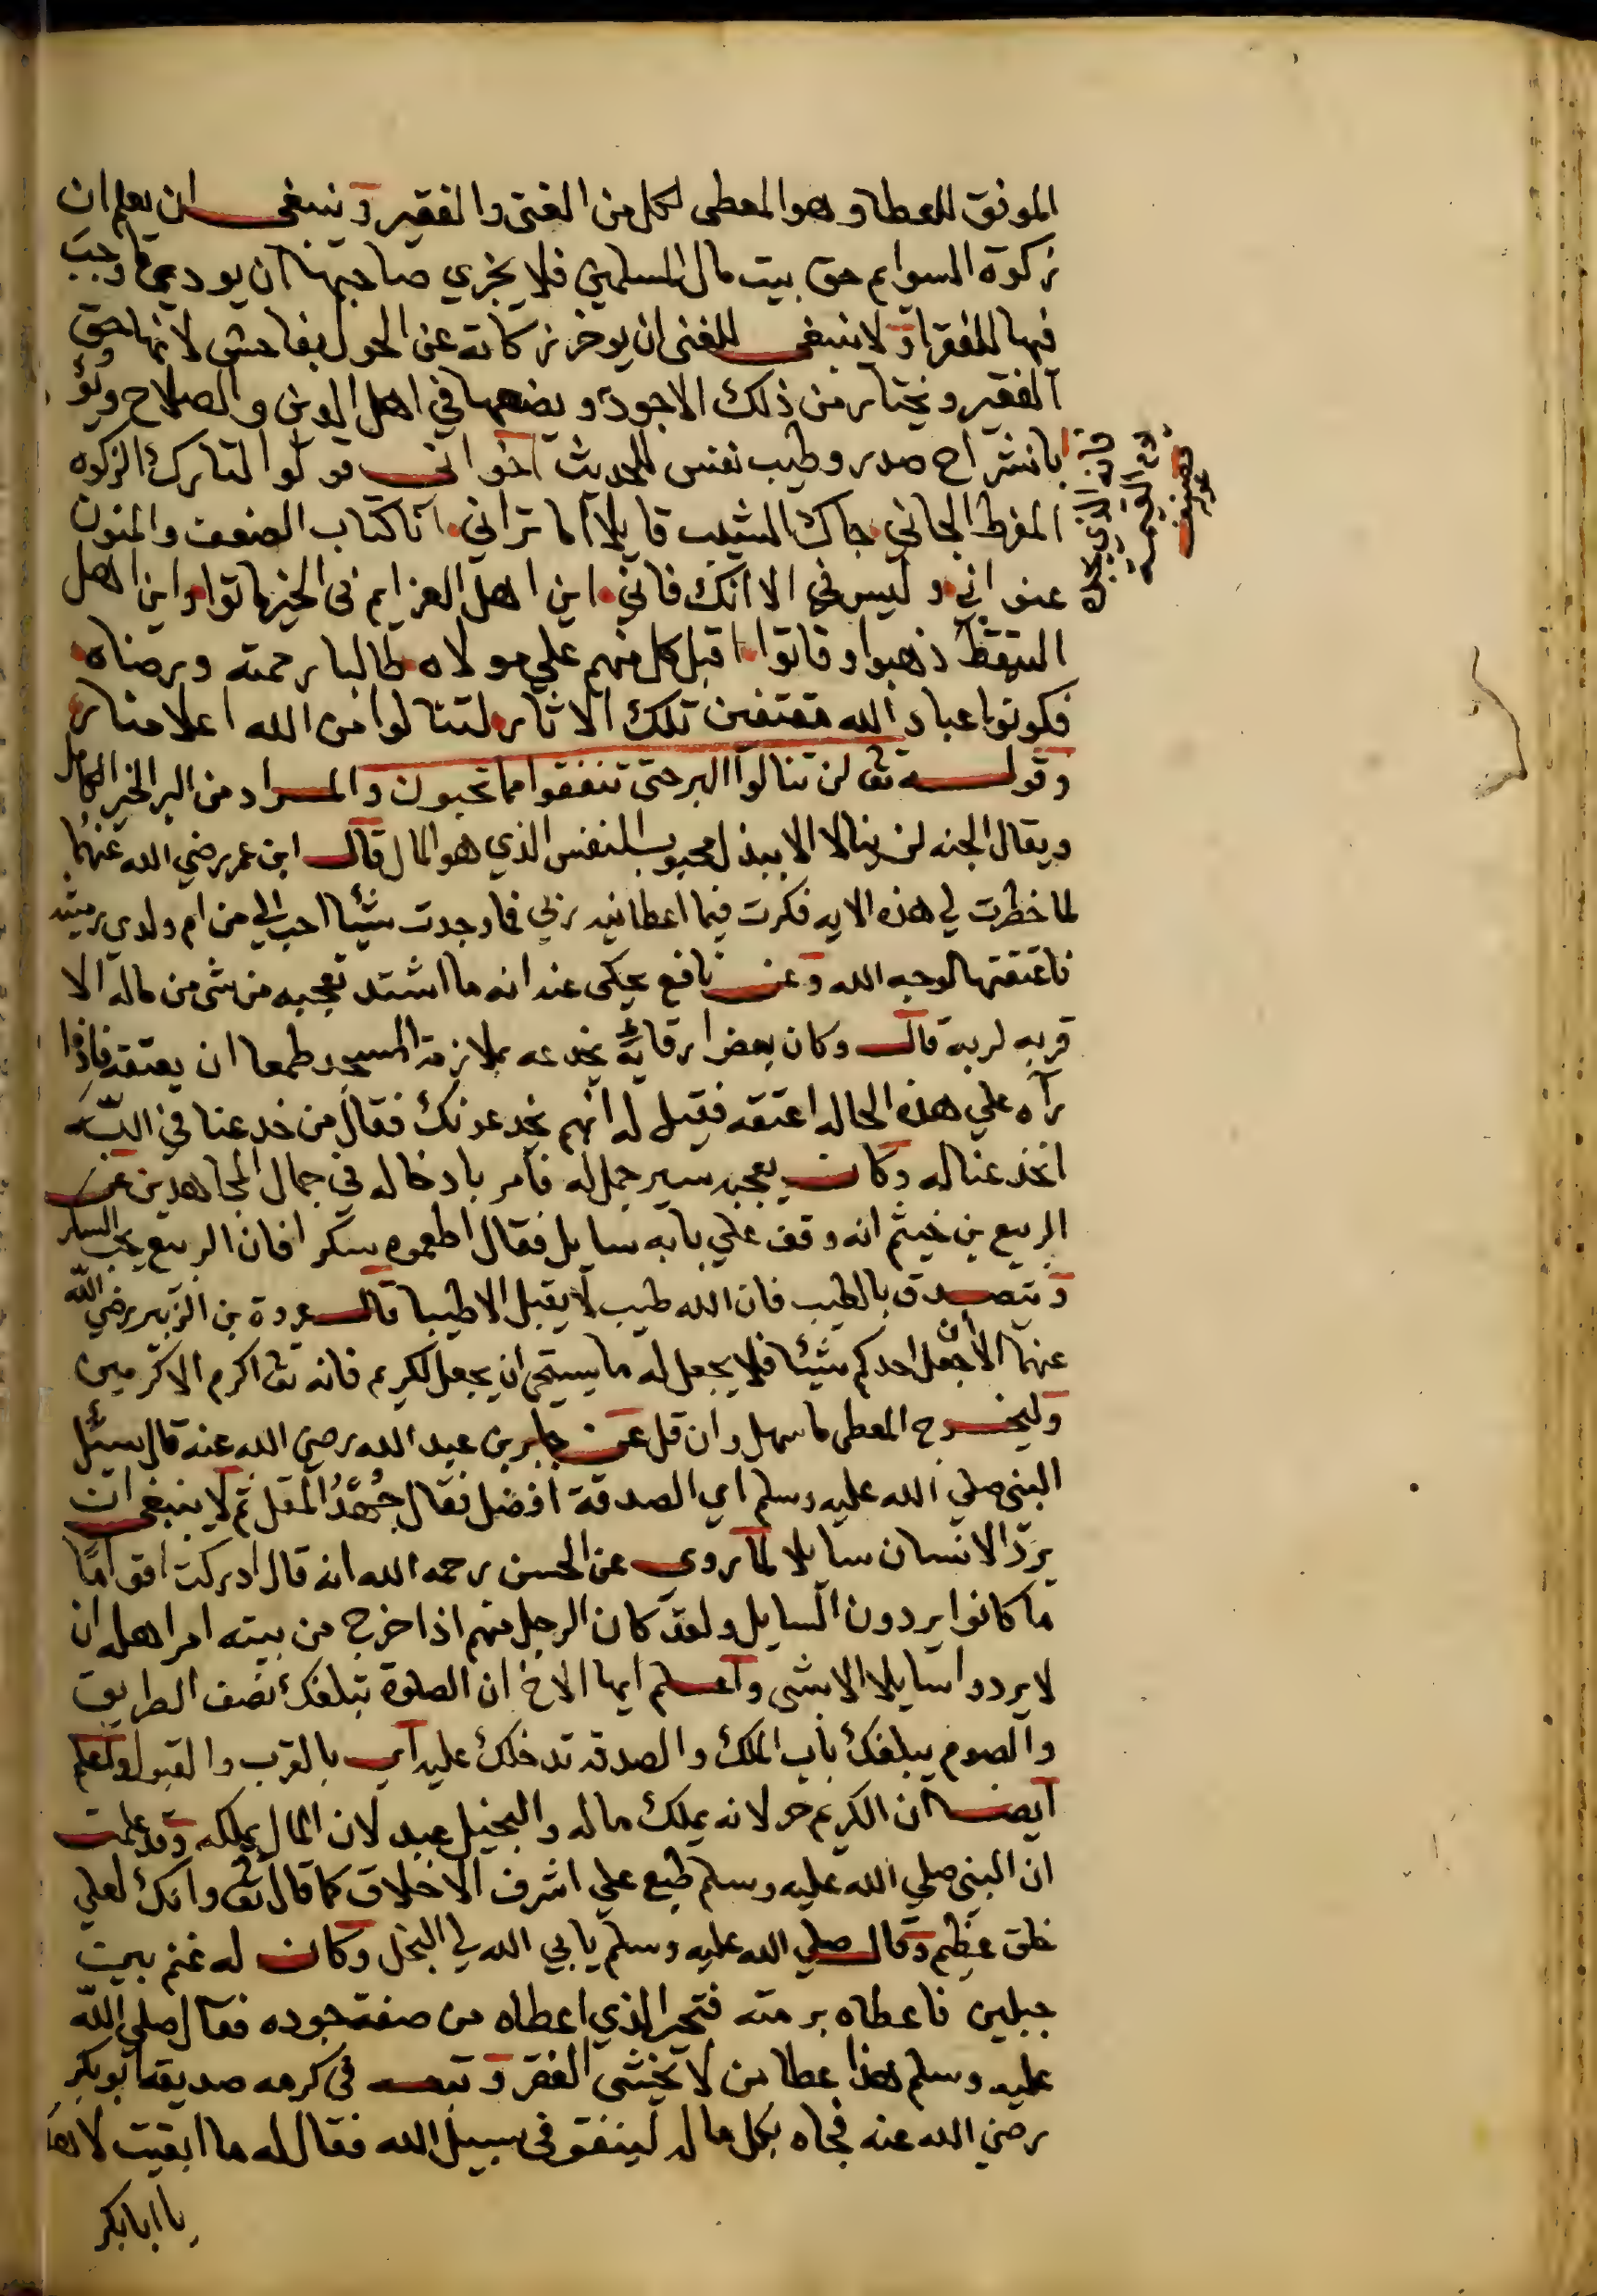 الموفق للعطا وهو المعطى لكل من الغنى والفقير وينبغى ان يعلم ان
زكوة السوايم حق بيت مال المسلمين فلا يجزي صاحبها ان يودي ما وجب
فيها للفقرا ولا ينبغى للغنى ان يوخر زكاته عن الحول بفاحش لانها حق
الفقير ويختار من ذلك الاجود ويضعها في اهل الدين والصلاح
بانشراح صدر وطيب نفس للحديث اخوانى قولوا لتارك الزكوه
المفرط الجاني جاك المشيب قايلا اما تراني انا كتاب الضعف والمنون
عنواني وليس في الا انك فاني اين اهل العزايم فى الخير ماتوا واين اهل
التيقظ ذهبوا وفاتوا اقبل كل منهم علي مولاه طالبا رحمته ورضاه
فكونوا عباد الله مقتفين تلك الاثار لتنالوا من الله اعلا منار
وقوله تعٰ لن تنالوا البر حتى تنفقوا مما تحبون والمراد من البر الخير الكامل
ويقال الجنه لن ينالا الا ببذل محبوب للنفس الذي هو المال قال ابن عمر رضي الله عنهما
لما خطرت لي هذه الايه فكرت فيما اعطانيه ربي فما وجدت شيئا احب الي من ام ولدي رميثه
فاعتقتها لوجه الله وعن نافع يحكى عنه انه ما اشتد تعجبه من شى من ماله الا
قربه لربه قال وكان بعض ارقائه يخدعه بملازمة المسجد طمعا ان يعتقه فاذا
رآه علي هذه الحاله اعتقه فقيل له انهم يخدعونك فقال من خدعنا في اللّه
انخدعنا له وكان يعجبه سير جمل له فامر بادخاله في جمال المجاهدين عن
الربيع بن خيثم انه وقف علي بابه سايل فقال اطعموه سكرا فان الربيع يحب السكر
ويتصدق بالطيب فان الله طيب لا يقبل الا طيبا قال عروة بن الزبير رضي اللّه
عنهما لان جعل احدكم شيئا فلا يجعل له ما يستحى ان يجعل لكريم فانه تعٰ اكرم الاكرمين
وليخرج المعطى ما سهل وان قل عن جابر بن عبد الله رضي الله عنه قال سئل
النبى صلي الله عليه وسلم اي الصدقة افضل فقال جُهْدُ المقل ثم لا ينبغى ان
يردّ الانسان سايلا لما روى عن الحسن رحمه الله انه قال ادركت اقواما
ما كانوا يردون السايل ولقد كان الرجل منهم اذا خرج من بيته امر اهله ان
لا يردوا سايلا الا بشى واعلم ايها الاخ ان الصلوة تبلغك نصف الطريق
والصوم يبلغك باب الملك والصدقه تدخلك عليه اي بالقرب والقبول واعلم
ايضا ان الكريم حر لانه يملك ماله والبخيل عبد لان المال يملكه وقد علمت
ان النبى صلي الله عليه وسلم طبع علي اشرف الاخلاق كما قال تعٰ وانك لعلي
خلق عظيم وقال صلي الله عليه وسلم يابي الله لي البخل وكان له غنم بين
جبلين فاعطاه برمته فتحير الذي اعطاه من صفة جوده فقال صلي اللّه
عليه وسلم هذا عطا من لا يخشى الفقر وتبعه فى كرمه صديقه ابو بكر
رضي الله عنه فجاه بكل ماله لينفق فى سبيل الله فقال له ما ابقيت لاهلك
يا ابا بكر